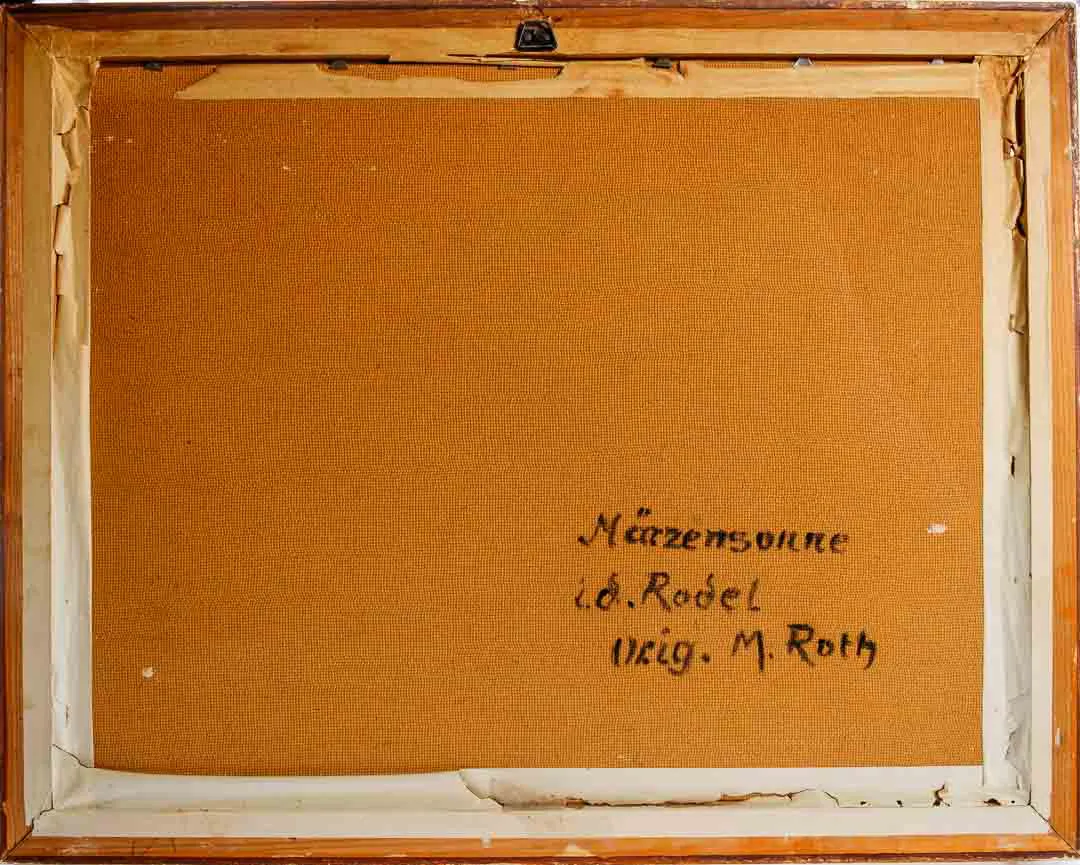 Märzensonne
i.d. Rodel
Orig. M. Roth